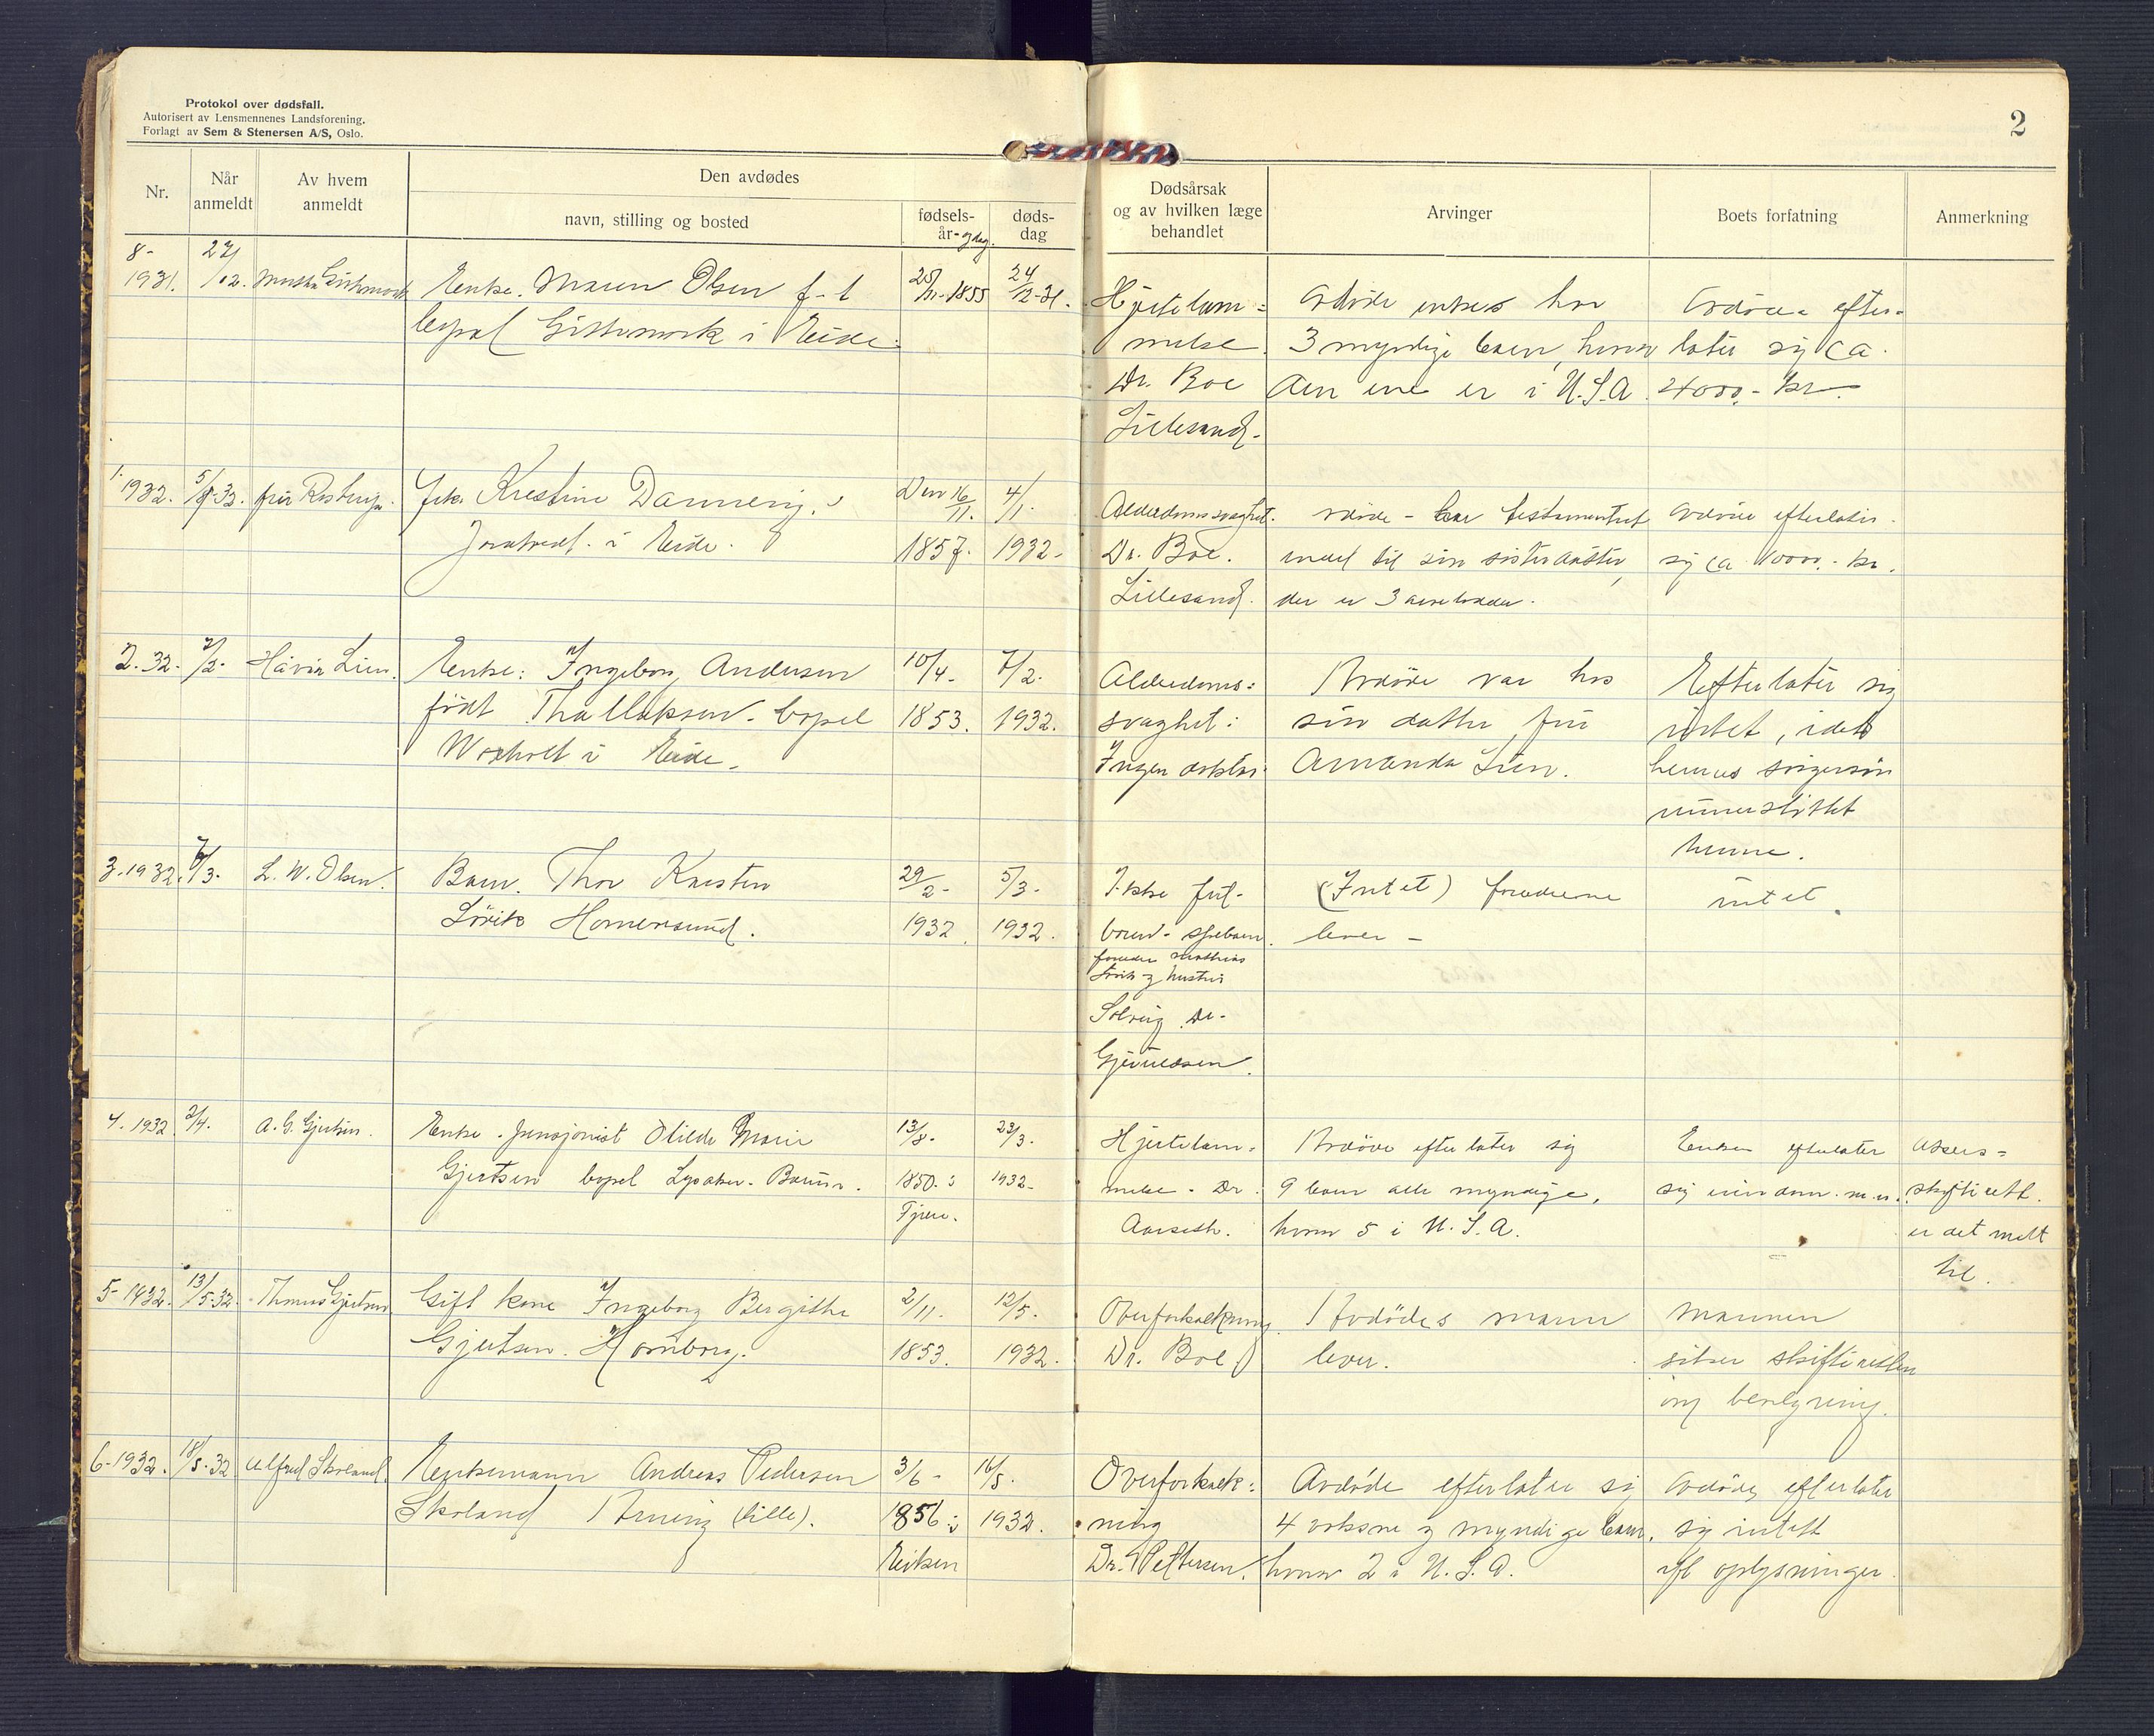 Protokol over dødsfall.
Autorisert av Lensmennenes Landsforening.
Forlagt av Sem & Stenersen A/S, Oslo.
2
Nr.
Når anmeldt
Av hvem anmeldt
Den avdødes
navn, stilling og bosted
fødsels-år- og dag.
døds-dag
Dødsårsak og av hvilken læge behandlet
Arvinger
Boets forfatning
Anmerkning
8-
1931.
Enke. Maren Olsen f-t
bopæl i Eide.
1855
24/12-31.
Hjertelam=
melse.
Dr. Boe
Lillesand.
Avdøde enkes har
3 myndige barn, hvorav
den ene er i U.S.A.
Avdøde efter-
later sig ca.
4000,- kr.
1-1932.
frk. Kristine Dannevig.
i Eide.
Den 16/11.
1857.
4/1.
1932.
Alderdomssvaghet.
Dr. Boe.
Lillesand.
Avdøde - har testamentert
til sin søsterdatter,
der er 3
Avdøde efterlater
sig ca 10000,- kr.
2. 32.
7/2.
Håvar Lien.
Enke: Ingeborg Andersen
født bopel
i Eide.
10/4-
1853.
7/2.
1932.
Alderdoms=
svaghet:
Ingen doktor.
Avdøde var hos
sin datter, fru
Amanda Lien.
Efterlater sig
intet, idet
hennes svigersøn
understøttet
henne.
3.1932.
/3.
L. W. Olsen.
Barn. Thor Karsten
Lörvik Homersund.
29/2-
1932.
5/3-
1932.
Ikke ful-
båren spebarn.
foreldre Mathias
Lörvik og hustru
Solveig Dr-
(Intet) foreldrene
lever -
intet.
4. 1932
2/4.
A. G. Gjertsen.
Enke. pensjonist Olilde Marie
Gjertsen bopel Lysaker. Bærum.
13/8-
1850. i
Fjære.
23/3.
1932-
Hjertelam=
melse. Dr.
Aarseth.
Avdøde efterlater sig
9 barn alle myndige,
hvorav 5 i U.S.A.
Enken efterlater
sig eiendom. m.v.
Akers=
skifterett.
er det meldt
til.
5-1932.
13/5-32.
Thomas Gjertsen
Gift kone Ingeborg Bergithe
Gjertsen. Hornborg.
2/11.
1853.
12/5.
1932.
Overforkalkning.
Dr. Boe
Avdødes mann
lever.
mannen
søker skifteretten
om bevilgning.
6-1932.
18/5-32
Alfred Skoland
Enkemann Andreas Pedersen
Skoland (lille).
3/6-
1856 i
Eiken
16/5.
1932.
Overforkalk=
ning
Dr. Pettersen.
Avdøde efterlater sig
4 voksne og myndige barn,
hvorav 2 i U.S.A.
Avdøde efterlater
sig intet
ifl oplysninger.